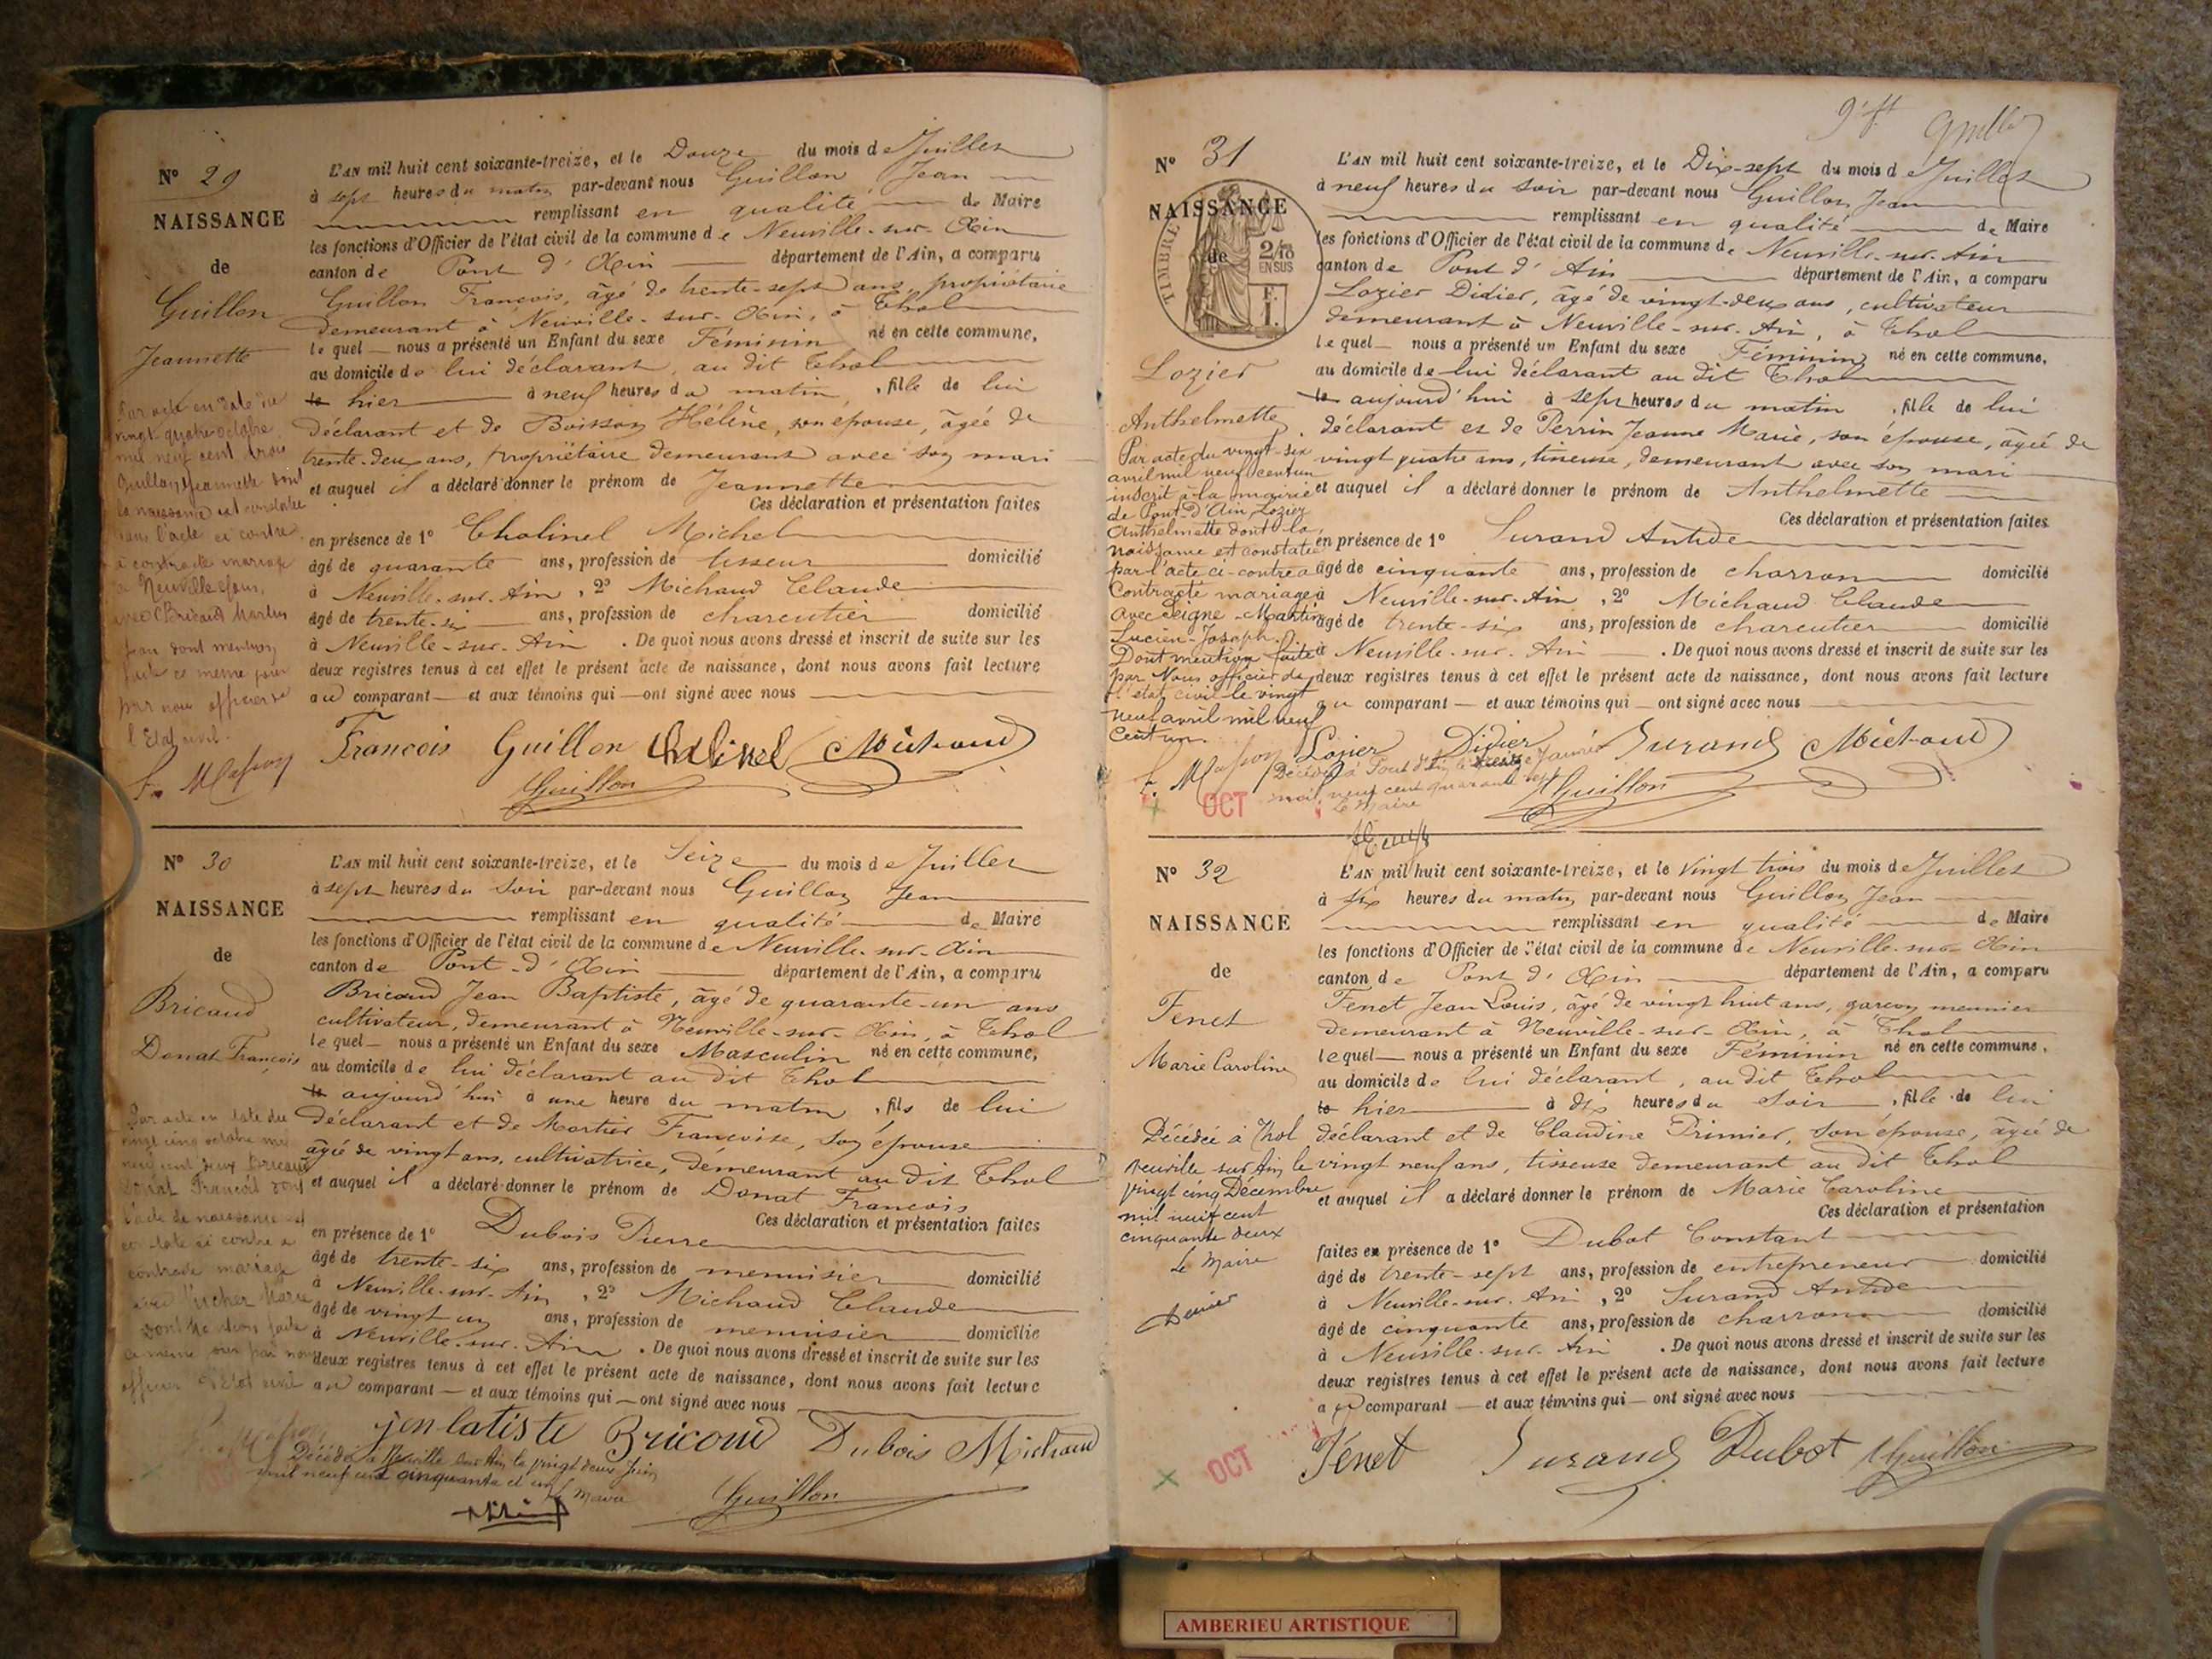 N° 29
NAISSANCE
de
Guillon
Jeannette
Par acte en date du
vingt quatre octobre
mil neuf cent trois
Guillon Jeannette dont
la naissance est constatée
dans l'acte ci contre
a contracté mariage
à Neuville s/ain,
avec Bricaud Martin
Jean dont mention
faite ce même jour
par nous officier de
l'Etat civil.
L'AN mil huit cent soixante-treize, et le Douze du mois de Juillet
à sept heures du matin par-devant nous Guillon Jean
remplissant en qualité de Maire
les fonctions d'Officier de l'état civil de la commune de Neuville-sur-Ain
canton de Pont d'Ain département de l'Ain, a comparu
Guillon François, âgé de trente-sept ans, propriétaire
demeurant à Neuville-sur-Ain, à Thol
lequel nous a présenté un Enfant du sexe Féminin né en cette commune,
au domicile de lui déclarant, au dit Thol
le hier à neuf heures du matin, fille de lui
déclarant et de Boisson Hélène, son épouse, âgée de
trente-deux ans, propriétaire demeurant avec son mari
et auquel il a déclaré donner le prénom de Jeannette
Ces déclaration et présentation faites
en présence de 1° Cholinel Michel
âgé de quarante ans, profession de tisseur domicilié
à Neuville-sur-Ain, 2° Michaud Claude
âgé de trente-six ans, profession de charcutier domicilié
à Neuville-sur-Ain. De quoi nous avons dressé et inscrit de suite sur les
deux registres tenus à cet effet le présent acte de naissance, dont nous avons fait lecture
au comparant et aux témoins qui ont signé avec nous
François Guillon Cholinel Michaud
Guillon
N° 30
NAISSANCE
de
Bricaud
Donat François
Par acte en date du
vingt cinq octobre mil
neuf cent deux Bricaud
Donat François dont
l'acte de naissance est
constaté ci contre a
contracté mariage
avec Marie
dont mention faite
ce même jour par nous
officier d'Etat civil
L'AN mil huit cent soixante-treize, et le Seize du mois de Juillet
à sept heures du soir par-devant nous Guillon Jean
remplissant en qualité de Maire
les fonctions d'Officier de l'état civil de la commune de Neuville-sur-Ain
canton de Pont-d'Ain département de l'Ain, a comparu
Bricaud Jean Baptiste, âgé de quarante-un ans
cultivateur, demeurant à Neuville-sur-Ain, à Thol
lequel nous a présenté un Enfant du sexe Masculin né en cette commune,
au domicile de lui déclarant au dit Thol
le aujourd'hui à une heure du matin, fils de lui
déclarant et de Mortier Françoise, son épouse
âgée de vingt ans, cultivatrice, demeurant au dit Thol
et auquel il a déclaré donner le prénom de Donat François
Ces déclaration et présentation faites
en présence de 1° Dubois Pierre
âgé de trente-six ans, profession de menuisier domicilié
à Neuville-sur-Ain, 2° Michaud Claude
âgé de vingt un ans, profession de menuisier domicilié
à Neuville-sur-Ain. De quoi nous avons dressé et inscrit de suite sur les
deux registres tenus à cet effet le présent acte de naissance, dont nous avons fait lecture
au comparant et aux témoins qui ont signé avec nous
jenbatiste Bricoud Dubois Michaud
Décédé à Neuville sur Ain le vingt deux Juin
mil neuf cent cinquante et un
Le Maire
Guillon
N° 31
NAISSANCE
de
TIMBRE
2/10
EN SUS
Lozier
Anthelmette
Par acte du vingt-six
avril mil neuf cent un
inscrit à la mairie
de Pont-d'Ain, Lozier
Anthelmette dont la
naissance est constatée
par l'acte ci-contre a
Contracté mariage
avec Leigne-Martin
Lucien-Joseph.
Dont mention faite
par Nous officier de
l'état civil le vingt
neuf avril mil neuf
cent un.
L'AN mil huit cent soixante-treize, et le Dix-sept du mois de Juillet
à neuf heures du soir par-devant nous Guillon Jean
remplissant en qualité de Maire
les fonctions d'Officier de l'état civil de la commune de Neuville-sur-Ain
canton de Pont d'Ain département de l'Ain, a comparu
Lozier Didier, âgé de vingt-deux ans, cultivateur
demeurant à Neuville-sur-Ain, à Thol
lequel nous a présenté un Enfant du sexe Féminin né en cette commune,
au domicile de lui déclarant au dit Thol
le aujourd'hui à sept heures du matin, fille de lui
déclarant et de Perrin Jeanne Marie, son épouse, âgée de
vingt quatre ans, tisseuse, demeurant avec son mari
et auquel il a déclaré donner le prénom de Anthelmette
Ces déclaration et présentation faites
en présence de 1° Surand Antide
âgé de cinquante ans, profession de charron domicilié
à Neuville-sur-Ain, 2° Michaud Claude
âgé de trente-six ans, profession de charcutier domicilié
à Neuville-sur-Ain. De quoi nous avons dressé et inscrit de suite sur les
deux registres tenus à cet effet le présent acte de naissance, dont nous avons fait lecture
au comparant et aux témoins qui ont signé avec nous
Lozier Didier Surand Michaud
Décédée à Pont d'Ain le treize Janvier
mil neuf cent quarante sept
Le Maire
Guillon
OCT
N° 32
NAISSANCE
de
Fenet
Marie Caroline
Décédée à Thol
Neuville sur Ain le
vingt cinq Décembre
mil neuf cent
cinquante deux
Le Maire
L'AN mil huit cent soixante-treize, et le Vingt trois du mois de Juillet
à six heures du matin par-devant nous Guillon Jean
remplissant en qualité de Maire
les fonctions d'Officier de l'état civil de la commune de Neuville-sur-Ain
canton de Pont d'Ain département de l'Ain, a comparu
Fenet Jean Louis, âgé de vingt huit ans, garçon meunier
demeurant à Neuville-sur-Ain, à Thol
lequel nous a présenté un Enfant du sexe Féminin né en cette commune,
au domicile de lui déclarant, au dit Thol
le hier à dix heures du soir, fille de lui
déclarant et de Claudine Primier, son épouse, âgée de
vingt neuf ans, tisseuse demeurant au dit Thol
et auquel il a déclaré donner le prénom de Marie Caroline
Ces déclaration et présentation
faites en présence de 1° Dubot Constant
âgé de trente-sept ans, profession de entrepreneur domicilié
à Neuville-sur-Ain, 2° Surand Antide
âgé de cinquante ans, profession de charron domicilié
à Neuville-sur-Ain. De quoi nous avons dressé et inscrit de suite sur les
deux registres tenus à cet effet le présent acte de naissance, dont nous avons fait lecture
au comparant et aux témoins qui ont signé avec nous
Fénet Surand Dubot Guillon
OCT
AMBERIEU ARTISTIQUE